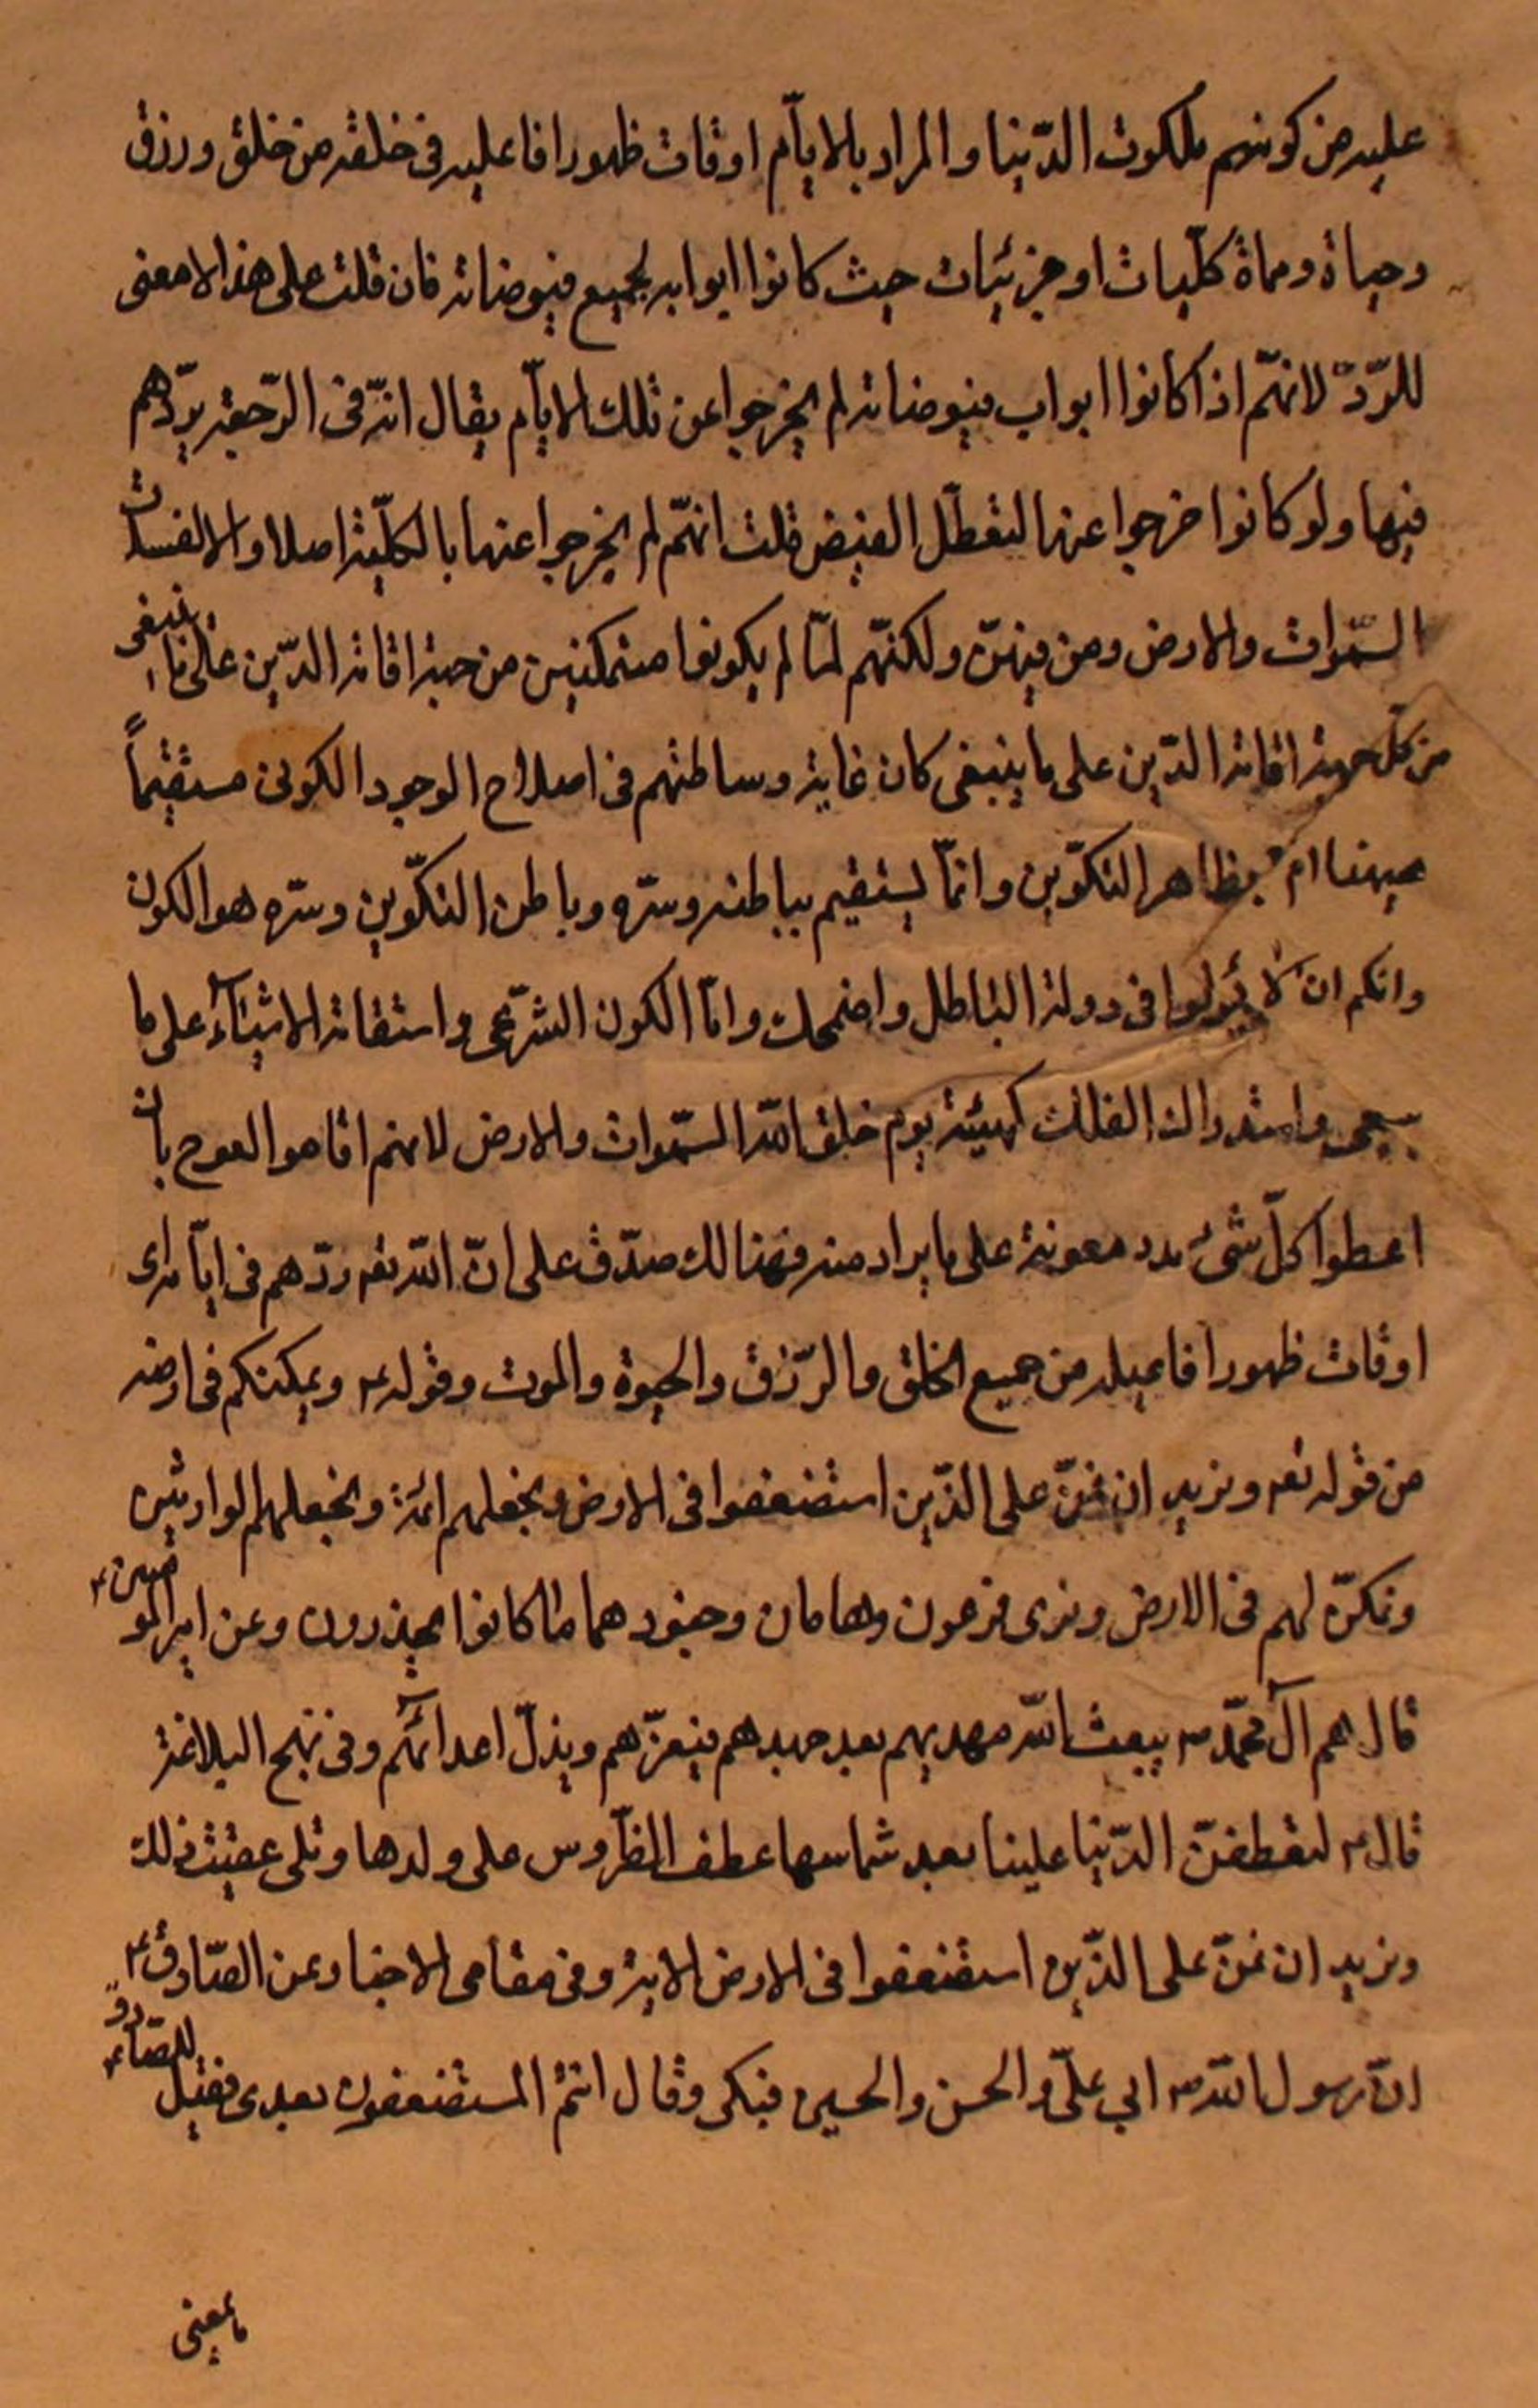 عليه من كونهم ملكوت الدّنيا والمراد بالايّام اوقات ظهور افاعليه فى خلقه من خلق ورزق
وحياة ومماة كلّيات او جزئيات حيث كانوا ابوابه لجميع فيوضاته فان قلت على هذا لا معنى
للرّدّ لانهّم اذا كانوا ابواب فيوضاته لم يخرجوا عن تلك الايّام يقال انّه فى الرّجعة يردّهم
فيها ولو كانوا خرجوا عنها لتعطّل الفيض قلت انهّم لم يخرجوا عنها بالكلّية اصلا والا لفسدت
السّموات والارض ومن فيهنّ ولكنّهم لمّا لم يكونوا متمكنين من جهة اقامة الدّين على ما ينبغى
من كلّ جهة اقامة الدّين على ما ينبغى كان غاية وساطتهم فى اصلاح الوجود الكونى مستقيماً
بظاهر التكوّين وانمّا يستقيم بباطنه وسرّه وباطن التكوّين وسرّه هو الكون
وانكم ان لا فى دولة الباطل واضمحلت وامّا الكون الشرّعى واستقامة الاشياء على ما
واستدارات الفلك كهيئة يوم خلق الله السّموات والارض لانهم اقاموا العوج بان
اعطوا كلّ شىء مدد معونة على ما يراد منه فهنالك صدّق على انّ الله تعه ردّهم فى ايّامه اى
اوقات ظهور افاعيله من جميع الخلق والرّزق والحيوة والموت وقوله ع ويمكنكم فى ارضه
من قوله تعه ونريد ان نمنّ على الذّين استضعفوا فى الارض ونجعلهم ائمة ونجعلهم الوارثين
ونمكنّ لهم فى الارض ونرى فرعون وهامان وجنودهما ما كانوا يحذرون وعن امير المومنين ع
قال هم آل محمّد ص يبعث الله مهديهم بعد جهدهم فيعزّهم ويذلّ اعدائهم وفى نهج البلاغة
قال ع لتعطفنّ الدّنيا علينا بعد شماسها عطف الضّروس على ولدها وتلى عقيب ذلك
ونريد ان نمنّ على الذّين استضعفوا فى الارض الاية وفى معانى الاخبار عن الصّادق ع
انّ رسول الله ص الى علىّ والحسن والحسين فبكى وقال انتم المستضعفون بعدى فقيل للصّادق ع
ما معنى